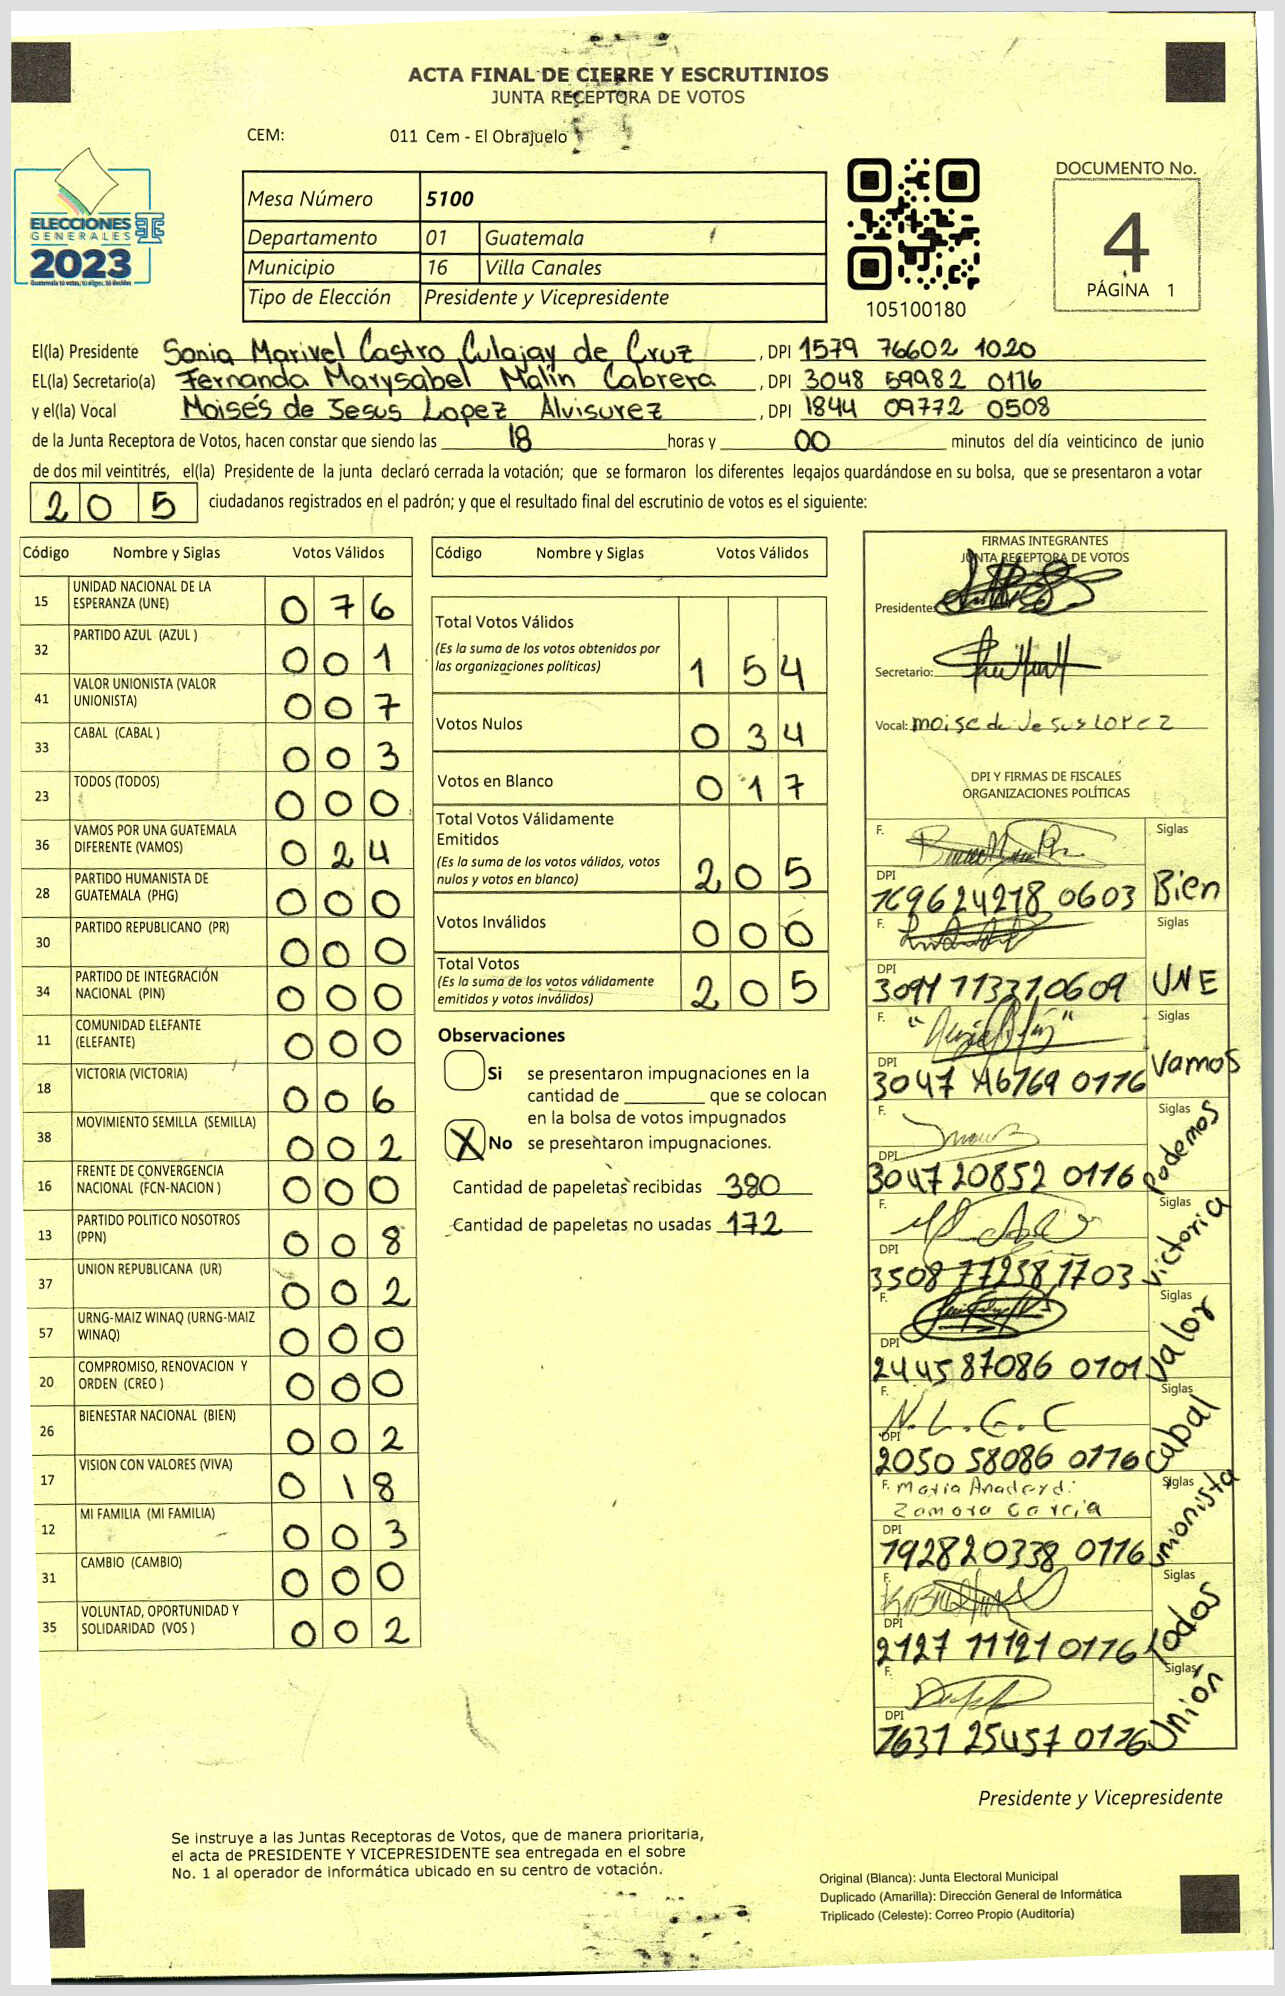 ACTA FINAL DE CIERRE Y ESCRUTINIOS
JUNTA RECEPTORA DE VOTOS
CEM: 011 Cem - El Obrajuelo
ELECCIONES
GENERALES
2023
Guatemala tú votas, tú eliges, tú decides
Mesa Número 5100
Departamento 01 Guatemala
Municipio 16 Villa Canales
Tipo de Elección Presidente y Vicepresidente
105100180
DOCUMENTO No.
4
PÁGINA 1
El(la) Presidente Sonia Marivel Castro Culajay de Cruz, DPI 1579 76602 1020
EL(la) Secretario(a) Fernanda Marysabel Malin Cabrera, DPI 3048 59982 0116
y el(la) Vocal Moisés de Jesus Lopez Alvisurez, DPI 1844 09772 0508
de la Junta Receptora de Votos, hacen constar que siendo las 18 horas y 00 minutos del día veinticinco de junio
de dos mil veintitrés, el(la) Presidente de la junta declaró cerrada la votación; que se formaron los diferentes legajos quardándose en su bolsa, que se presentaron a votar
205 ciudadanos registrados en el padrón; y que el resultado final del escrutinio de votos es el siguiente:
Código Nombre y Siglas Votos Válidos
15 UNIDAD NACIONAL DE LA ESPERANZA (UNE) 076
32 PARTIDO AZUL (AZUL ) 001
41 VALOR UNIONISTA (VALOR UNIONISTA) 007
33 CABAL (CABAL ) 003
23 TODOS (TODOS) 000
36 VAMOS POR UNA GUATEMALA DIFERENTE (VAMOS) 024
28 PARTIDO HUMANISTA DE GUATEMALA (PHG) 000
30 PARTIDO REPUBLICANO (PR) 000
34 PARTIDO DE INTEGRACIÓN NACIONAL (PIN) 000
11 COMUNIDAD ELEFANTE (ELEFANTE) 000
18 VICTORIA (VICTORIA) 006
38 MOVIMIENTO SEMILLA (SEMILLA) 002
16 FRENTE DE CONVERGENCIA NACIONAL (FCN-NACION ) 000
13 PARTIDO POLITICO NOSOTROS (PPN) 008
37 UNION REPUBLICANA (UR) 002
57 URNG-MAIZ WINAQ (URNG-MAIZ WINAQ) 000
20 COMPROMISO, RENOVACION Y ORDEN (CREO ) 000
26 BIENESTAR NACIONAL (BIEN) 002
17 VISION CON VALORES (VIVA) 018
12 MI FAMILIA (MI FAMILIA) 003
31 CAMBIO (CAMBIO) 000
35 VOLUNTAD, OPORTUNIDAD Y SOLIDARIDAD (VOS ) 002
Código Nombre y Siglas Votos Válidos
Total Votos Válidos
(Es la suma de los votos obtenidos por las organizaciones políticas) 154
Votos Nulos 034
Votos en Blanco 017
Total Votos Válidamente Emitidos
(Es la suma de los votos válidos, votos nulos y votos en blanco) 205
Votos Inválidos 000
Total Votos
(Es la suma de los votos válidamente emitidos y votos inválidos) 205
Observaciones
Si se presentaron impugnaciones en la
cantidad de ________ que se colocan
en la bolsa de votos impugnados
X No se presentaron impugnaciones.
Cantidad de papeletas recibidas 380
Cantidad de papeletas no usadas 172
FIRMAS INTEGRANTES
JUNTA RECEPTORA DE VOTOS
Presidente:
Secretario:
Vocal: moise de Jesus LOPEZ
DPI Y FIRMAS DE FISCALES
ORGANIZACIONES POLÍTICAS
F. Siglas
DPI 1696 24218 0603 Bien
F. Siglas
DPI 3091 11331 0609 UNE
F. Siglas
DPI 3047 0116 Vamos
F. Siglas
DPI 3047 20852 0116 Podemos
F. Siglas
DPI 3508 77238 1703 Victoria
F. Siglas
DPI 2445 87086 0101 Valor
F. N.L.G.C Siglas
DPI 2050 58086 0116 Cabal
F. Maria Siglas
Zamora Garcia
DPI 1928 20338 0116 Unionista
F. Siglas
DPI 2127 11121 0116 Todos
F. Siglas
DPI 1631 25457 0116 Unión
Presidente y Vicepresidente
Se instruye a las Juntas Receptoras de Votos, que de manera prioritaria,
el acta de PRESIDENTE Y VICEPRESIDENTE sea entregada en el sobre
No. 1 al operador de informática ubicado en su centro de votación.
Original (Blanca): Junta Electoral Municipal
Duplicado (Amarilla): Dirección General de Informática
Triplicado (Celeste): Correo Propio (Auditoría)